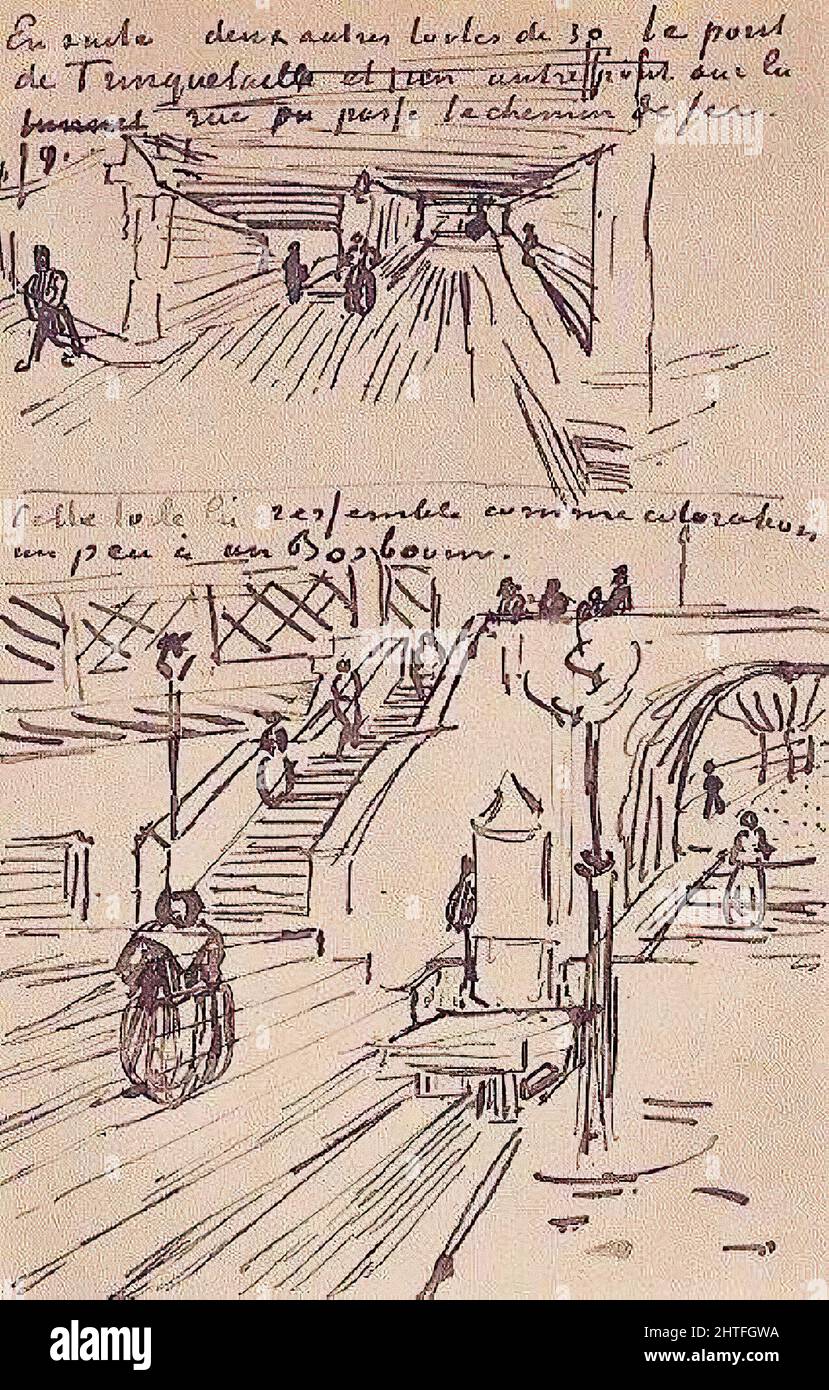 En suite deux autres toiles de 30 le pont
de Trinquetaille et un autre pont sur la
rue ou passe le chemin de fer.
Cette toile là ressemble comme coloration
un peu à un Bosboom.
alamy
Image ID: 2HTFGWA
www.alamy.com